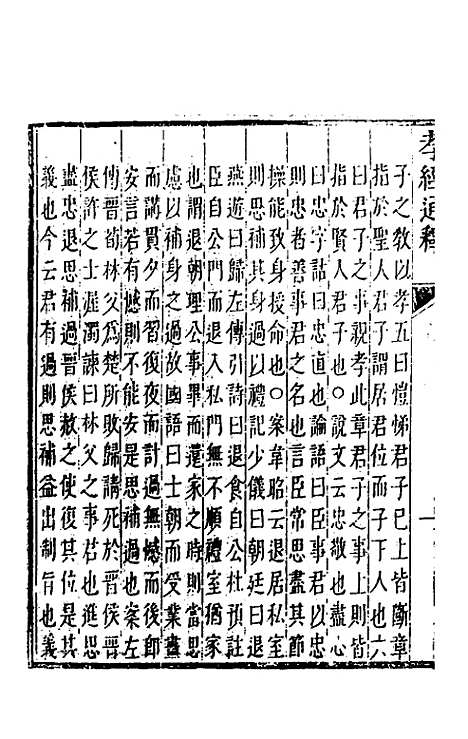 孝經通釋
子之教以孝五曰愷悌君子巳上皆斷章
指於聖人君子謂居君位而子下人也六
曰君子之事親孝此章君子之事上則皆
指於賢人君子也○說文云忠敬也盡心
曰忠字詁曰忠直也論語曰臣事君以忠
則忠者善事君之名也言臣常思盡其節
操能致身授命也○案韋昭云退居私室
則思補其身過以禮記少儀曰朝廷曰退
燕遊曰歸左傳引詩曰退食自公杜預註
臣自公門而退入私門無不順禮室猶家
也謂退朝理公事畢而還家之時則當思
慮以補身之過故國語曰士朝而受業晝
而講貫夕而習復夜而計過無憾而後即
安言若有憾則不能安是思補過也案左
傳晉荀林父爲楚所敗歸請死於晉侯晉
侯許之士渥濁諫曰林父之事君也進思
盡忠退思補過晉侯赦之使復其位是其
義也今云君有過則思補益出制旨也義